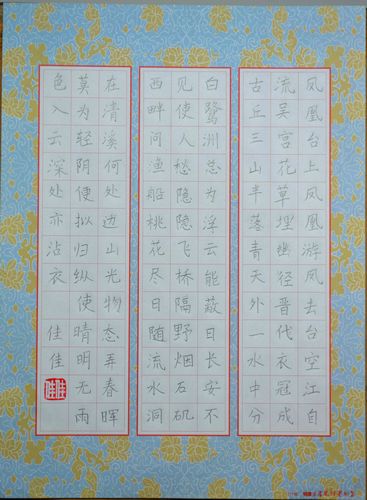 凤凰台上凤凰游凤去台空江自
流吴宫花草埋幽径晋代衣冠成
古丘三山半落青天外一水中分
白鹭洲总为浮云能蔽日长安不
见使人愁隐隐飞桥隔野烟石矶
西畔问渔船桃花尽日随流水洞
在清溪何处边山光物态弄春晖
莫为轻阴便拟归纵使晴明无雨
色入云深处亦沾衣
佳佳